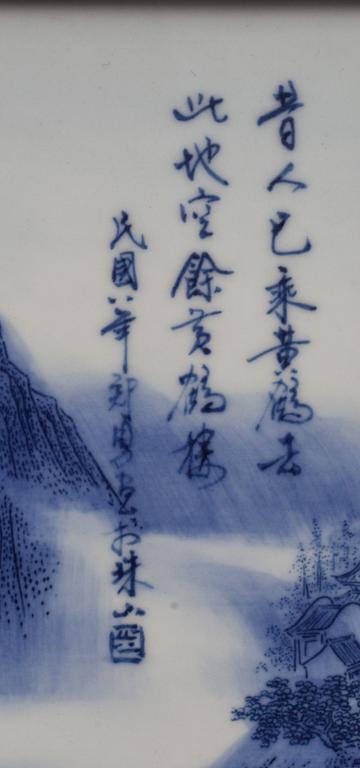 昔人已乘黄鶴去
此地空餘黄鶴楼
民國八年 畫於珠山